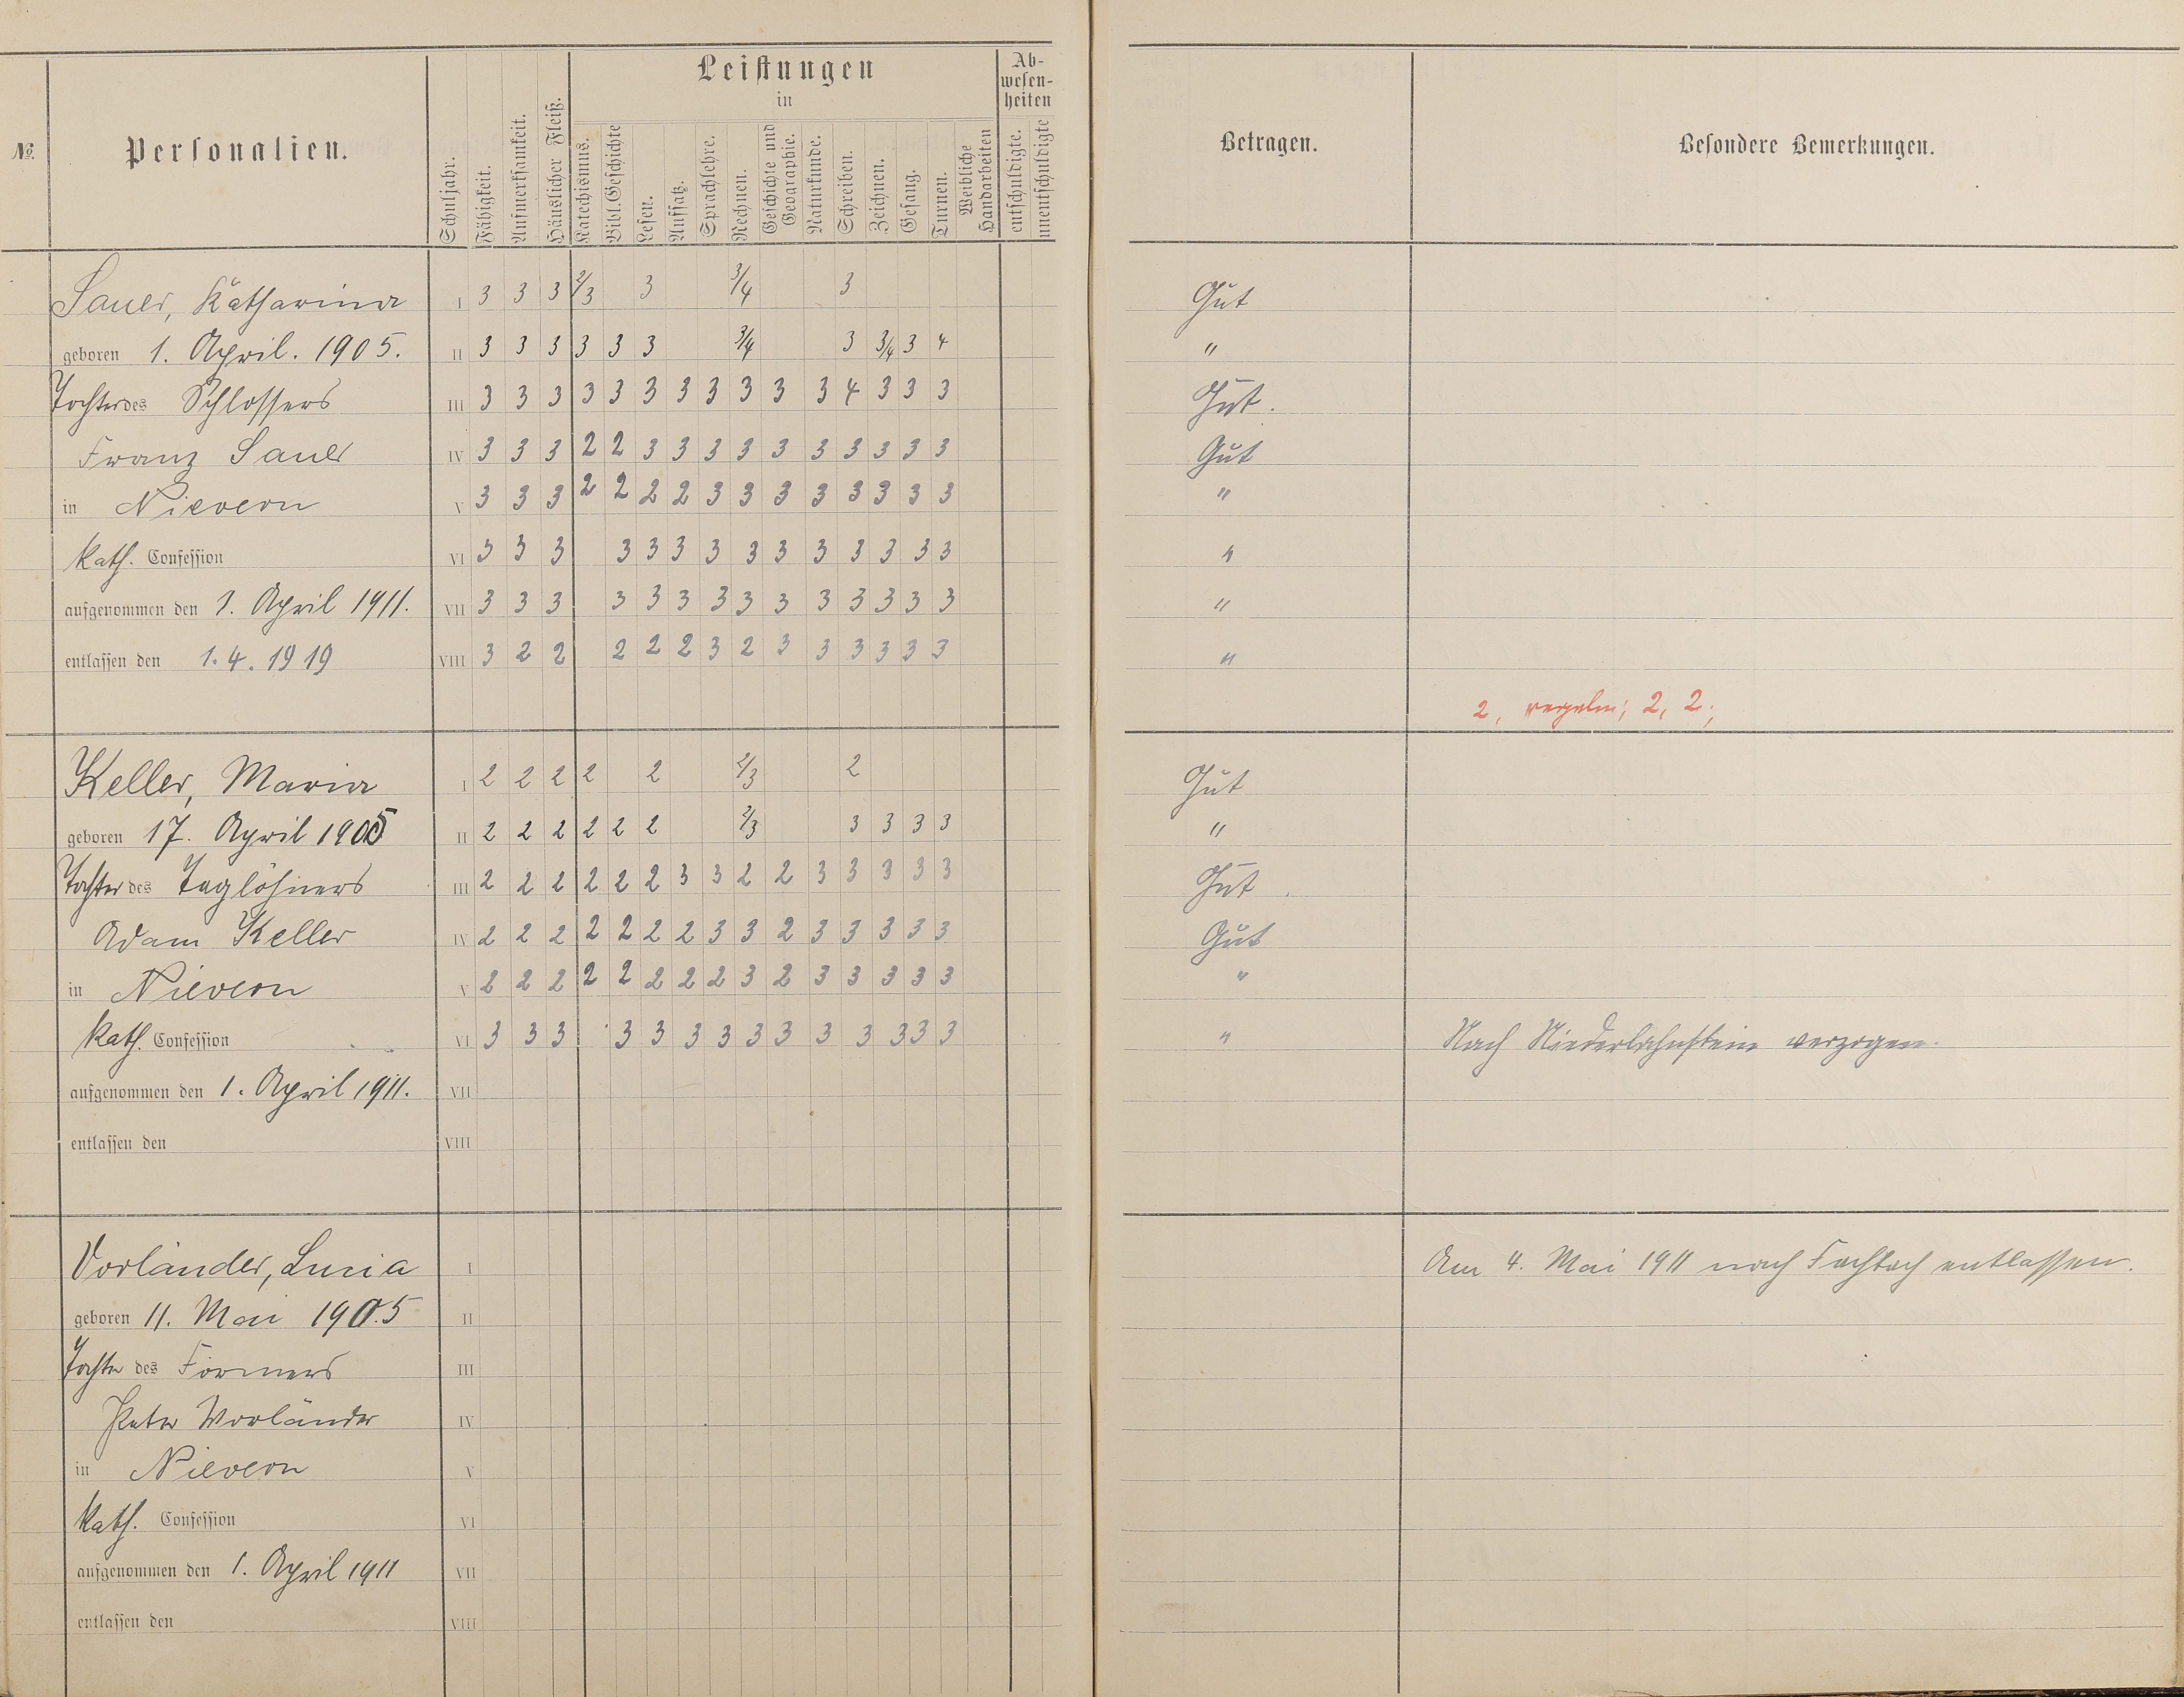 Leistungen
in
Ab-
wesen-
heiten
№.
Personalien.
Schuljahr.
Fähigkeit.
Aufmerksamkeit.
Häuslicher Fleiß.
Katechismus.
Bibl. Geschichte
Lesen.
Aufsatz.
Sprachlehre.
Rechnen.
Geschichte und
Geographie.
Naturkunde.
Schreiben.
Zeichnen.
Gesang.
Turnen.
Weibliche
Handarbeiten
entschuldigte.
unentschuldigte
Betragen.
Besondere Bemerkungen.
Sauer, Katharina I 3 3 3 2/3 3 3/4 3 Gut
geboren 1. April. 1905. II 3 3 3 3 3 3 3/4 3 3/4 3 4 "
Tochter des Schlossers III 3 3 3 3 3 3 3 3 3 3 3 4 3 3 3 Gut.
Franz Sauer IV 3 3 3 2 2 3 3 3 3 3 3 3 3 3 3 Gut
in Nievern V 3 3 3 2 2 2 2 3 3 3 3 3 3 3 3 "
kath. Confession VI 3 3 3 3 3 3 3 3 3 3 3 3 3 3 "
aufgenommen den 1. April 1911. VII 3 3 3 3 3 3 3 3 3 3 3 3 3 3 "
entlassen den 1.4.1919 VIII 3 2 2 2 2 2 3 2 3 3 3 3 3 3 "
2, 2, 2;
Keller, Maria I 2 2 2 2 2 2/3 2 Gut
geboren 17. April 1905 II 2 2 2 2 2 2 2/3 3 3 3 3 "
Tochter des Taglöhners III 2 2 2 2 2 2 3 3 2 2 3 3 3 3 3 Gut.
Adam Keller IV 2 2 2 2 2 2 2 3 3 2 3 3 3 3 3 Gut
in Nievern V 2 2 2 2 2 2 2 2 3 2 3 3 3 3 3 "
kath. Confession VI 3 3 3 3 3 3 3 3 3 3 3 3 3 3 " Nach Niederlahnstein verzogen.
aufgenommen den 1. April 1911. VII
entlassen den VIII
Vorländer, Lucia I Am 4. Mai 1911 nach Fachbach entlassen.
geboren 11. Mai 1905 II
Tochter des Formers III
Peter Vorländer IV
in Nievern V
kath. Confession VI
aufgenommen den 1. April 1911 VII
entlassen den VIII